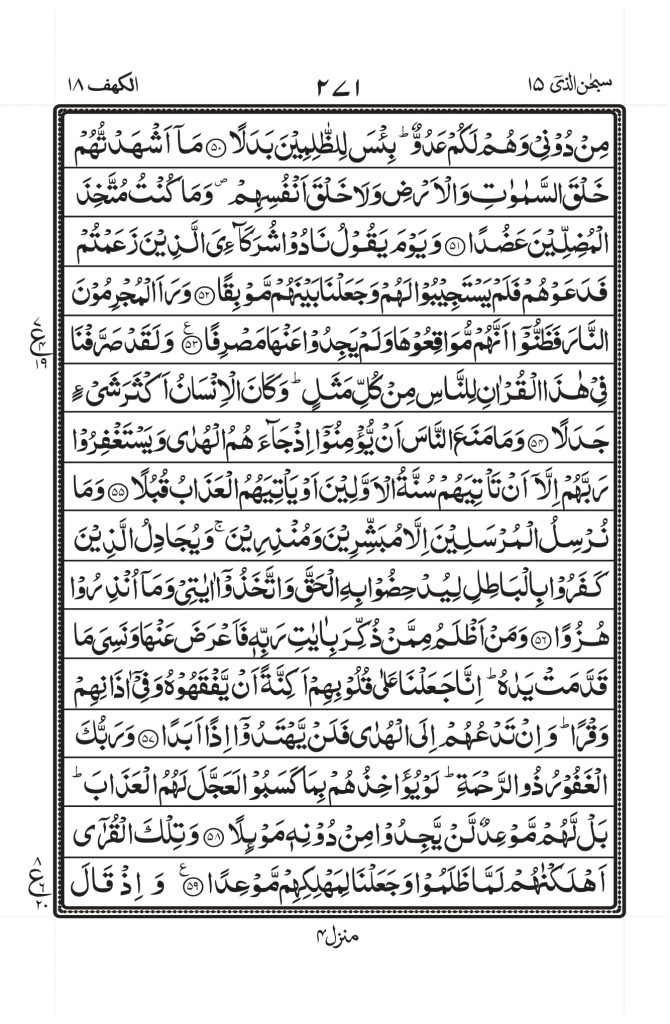 سبحٰن الذیٓ ۱۵ ۲۷۱ الکھف ۱۸
مِنْ دُوْنِیْ وَهُمْ لَكُمْ عَدُوٌّ ؕ بِئْسَ لِلظّٰلِمِیْنَ بَدَلًا ﴿۵۰﴾ مَاۤ اَشْهَدْتُّهُمْ
خَلْقَ السَّمٰوٰتِ وَالْاَرْضِ وَلَا خَلْقَ اَنْفُسِهِمْ ۪ وَمَا كُنْتُ مُتَّخِذَ
الْمُضِلِّیْنَ عَضُدًا ﴿۵۱﴾ وَیَوْمَ یَقُوْلُ نَادُوْا شُرَكَآءِیَ الَّذِیْنَ زَعَمْتُمْ
فَدَعَوْهُمْ فَلَمْ یَسْتَجِیْبُوْا لَهُمْ وَجَعَلْنَا بَیْنَهُمْ مَّوْبِقًا ﴿۵۲﴾ وَرَاَ الْمُجْرِمُوْنَ
النَّارَ فَظَنُّوْۤا اَنَّهُمْ مُّوَاقِعُوْهَا وَلَمْ یَجِدُوْا عَنْهَا مَصْرِفًا ﴿۵۳﴾ ع وَلَقَدْ صَرَّفْنَا
۷ ع ۴ ۱۹
فِیْ هٰذَا الْقُرْاٰنِ لِلنَّاسِ مِنْ كُلِّ مَثَلٍ ؕ وَكَانَ الْاِنْسَانُ اَكْثَرَ شَیْءٍ
جَدَلًا ﴿۵۴﴾ وَمَا مَنَعَ النَّاسَ اَنْ یُّؤْمِنُوْۤا اِذْ جَآءَهُمُ الْهُدٰی وَیَسْتَغْفِرُوْا
رَبَّهُمْ اِلَّاۤ اَنْ تَاْتِیَهُمْ سُنَّةُ الْاَوَّلِیْنَ اَوْ یَاْتِیَهُمُ الْعَذَابُ قُبُلًا ﴿۵۵﴾ وَمَا
نُرْسِلُ الْمُرْسَلِیْنَ اِلَّا مُبَشِّرِیْنَ وَمُنْذِرِیْنَ ۚ وَیُجَادِلُ الَّذِیْنَ
كَفَرُوْا بِالْبَاطِلِ لِیُدْحِضُوْا بِهِ الْحَقَّ وَاتَّخَذُوْۤا اٰیٰتِیْ وَمَاۤ اُنْذِرُوْا
هُزُوًا ﴿۵۶﴾ وَمَنْ اَظْلَمُ مِمَّنْ ذُكِّرَ بِاٰیٰتِ رَبِّهٖ فَاَعْرَضَ عَنْهَا وَنَسِیَ مَا
قَدَّمَتْ یَدٰهُ ؕ اِنَّا جَعَلْنَا عَلٰی قُلُوْبِهِمْ اَكِنَّةً اَنْ یَّفْقَهُوْهُ وَفِیْۤ اٰذَانِهِمْ
وَقْرًا ؕ وَاِنْ تَدْعُهُمْ اِلَی الْهُدٰی فَلَنْ یَّهْتَدُوْۤا اِذًا اَبَدًا ﴿۵۷﴾ وَرَبُّكَ
الْغَفُوْرُ ذُو الرَّحْمَةِ ؕ لَوْ یُؤَاخِذُهُمْ بِمَا كَسَبُوْا لَعَجَّلَ لَهُمُ الْعَذَابَ ؕ
بَلْ لَّهُمْ مَّوْعِدٌ لَّنْ یَّجِدُوْا مِنْ دُوْنِهٖ مَوْىِٕلًا ﴿۵۸﴾ وَتِلْكَ الْقُرٰۤی
اَهْلَكْنٰهُمْ لَمَّا ظَلَمُوْا وَجَعَلْنَا لِمَهْلِكِهِمْ مَّوْعِدًا ﴿۵۹﴾ ع وَاِذْ قَالَ
۸ ع ۶ ۲۰
منزل ۴